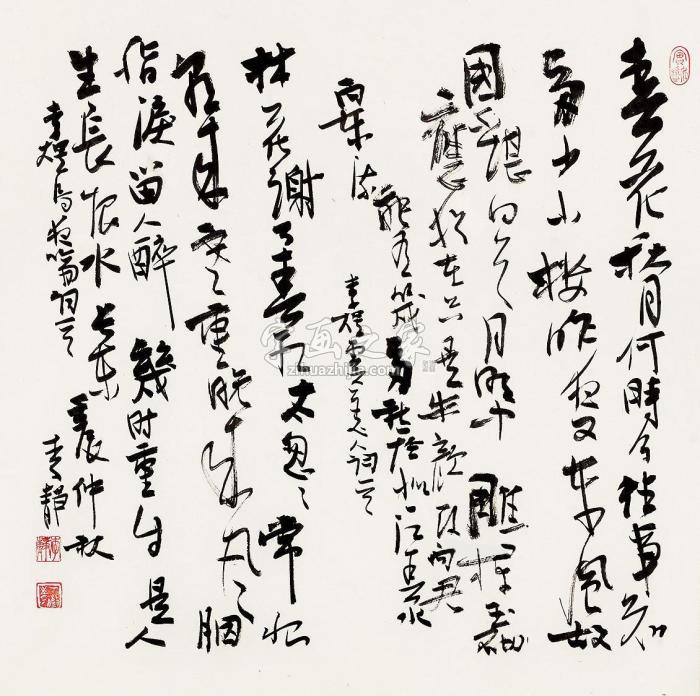 春花秋月何時了往事知
多少小樓昨夜又東風故
國不堪回首月明中雕欄玉砌
應猶在只是朱顏改問君
能有幾多愁恰似一江春水
向東流
李煜虞美人詞一
林花謝了春紅太匆匆常恨
朝來寒重晚來風胭
脂淚留人醉幾時重自是人
生長恨水長東壬辰仲秋
李煜烏夜啼詞一
李靜
字画之家
zihuazhijia.com